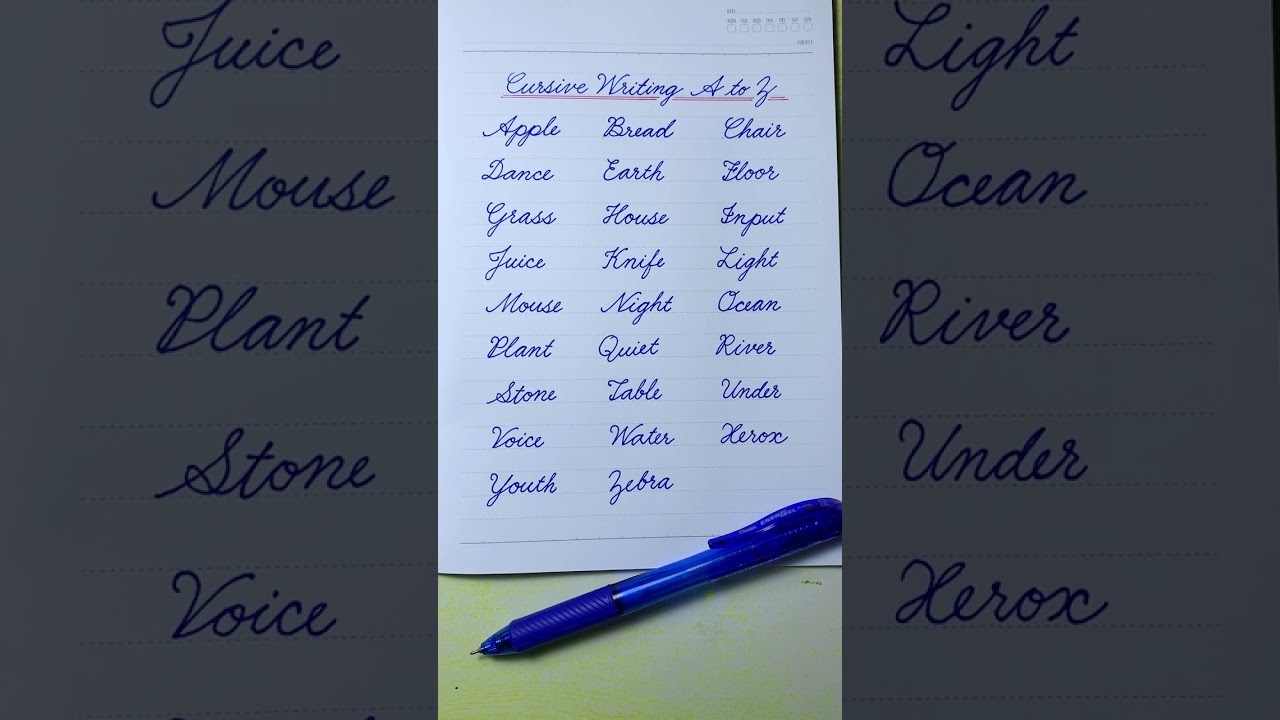 DATE
MON TUE WED THU FRI SAT SUN
SUBJECT
Cursive Writing A to Z
Apple Bread Chair
Dance Earth Floor
Grass House Input
Juice Knife Light
Mouse Night Ocean
Plant Quiet River
Stone Table Under
Voice Water Xerox
Youth Zebra
Pentel ENERGEL
Juice
Mouse
Plant
Stone
Voice
Light
Ocean
River
Under
Xerox